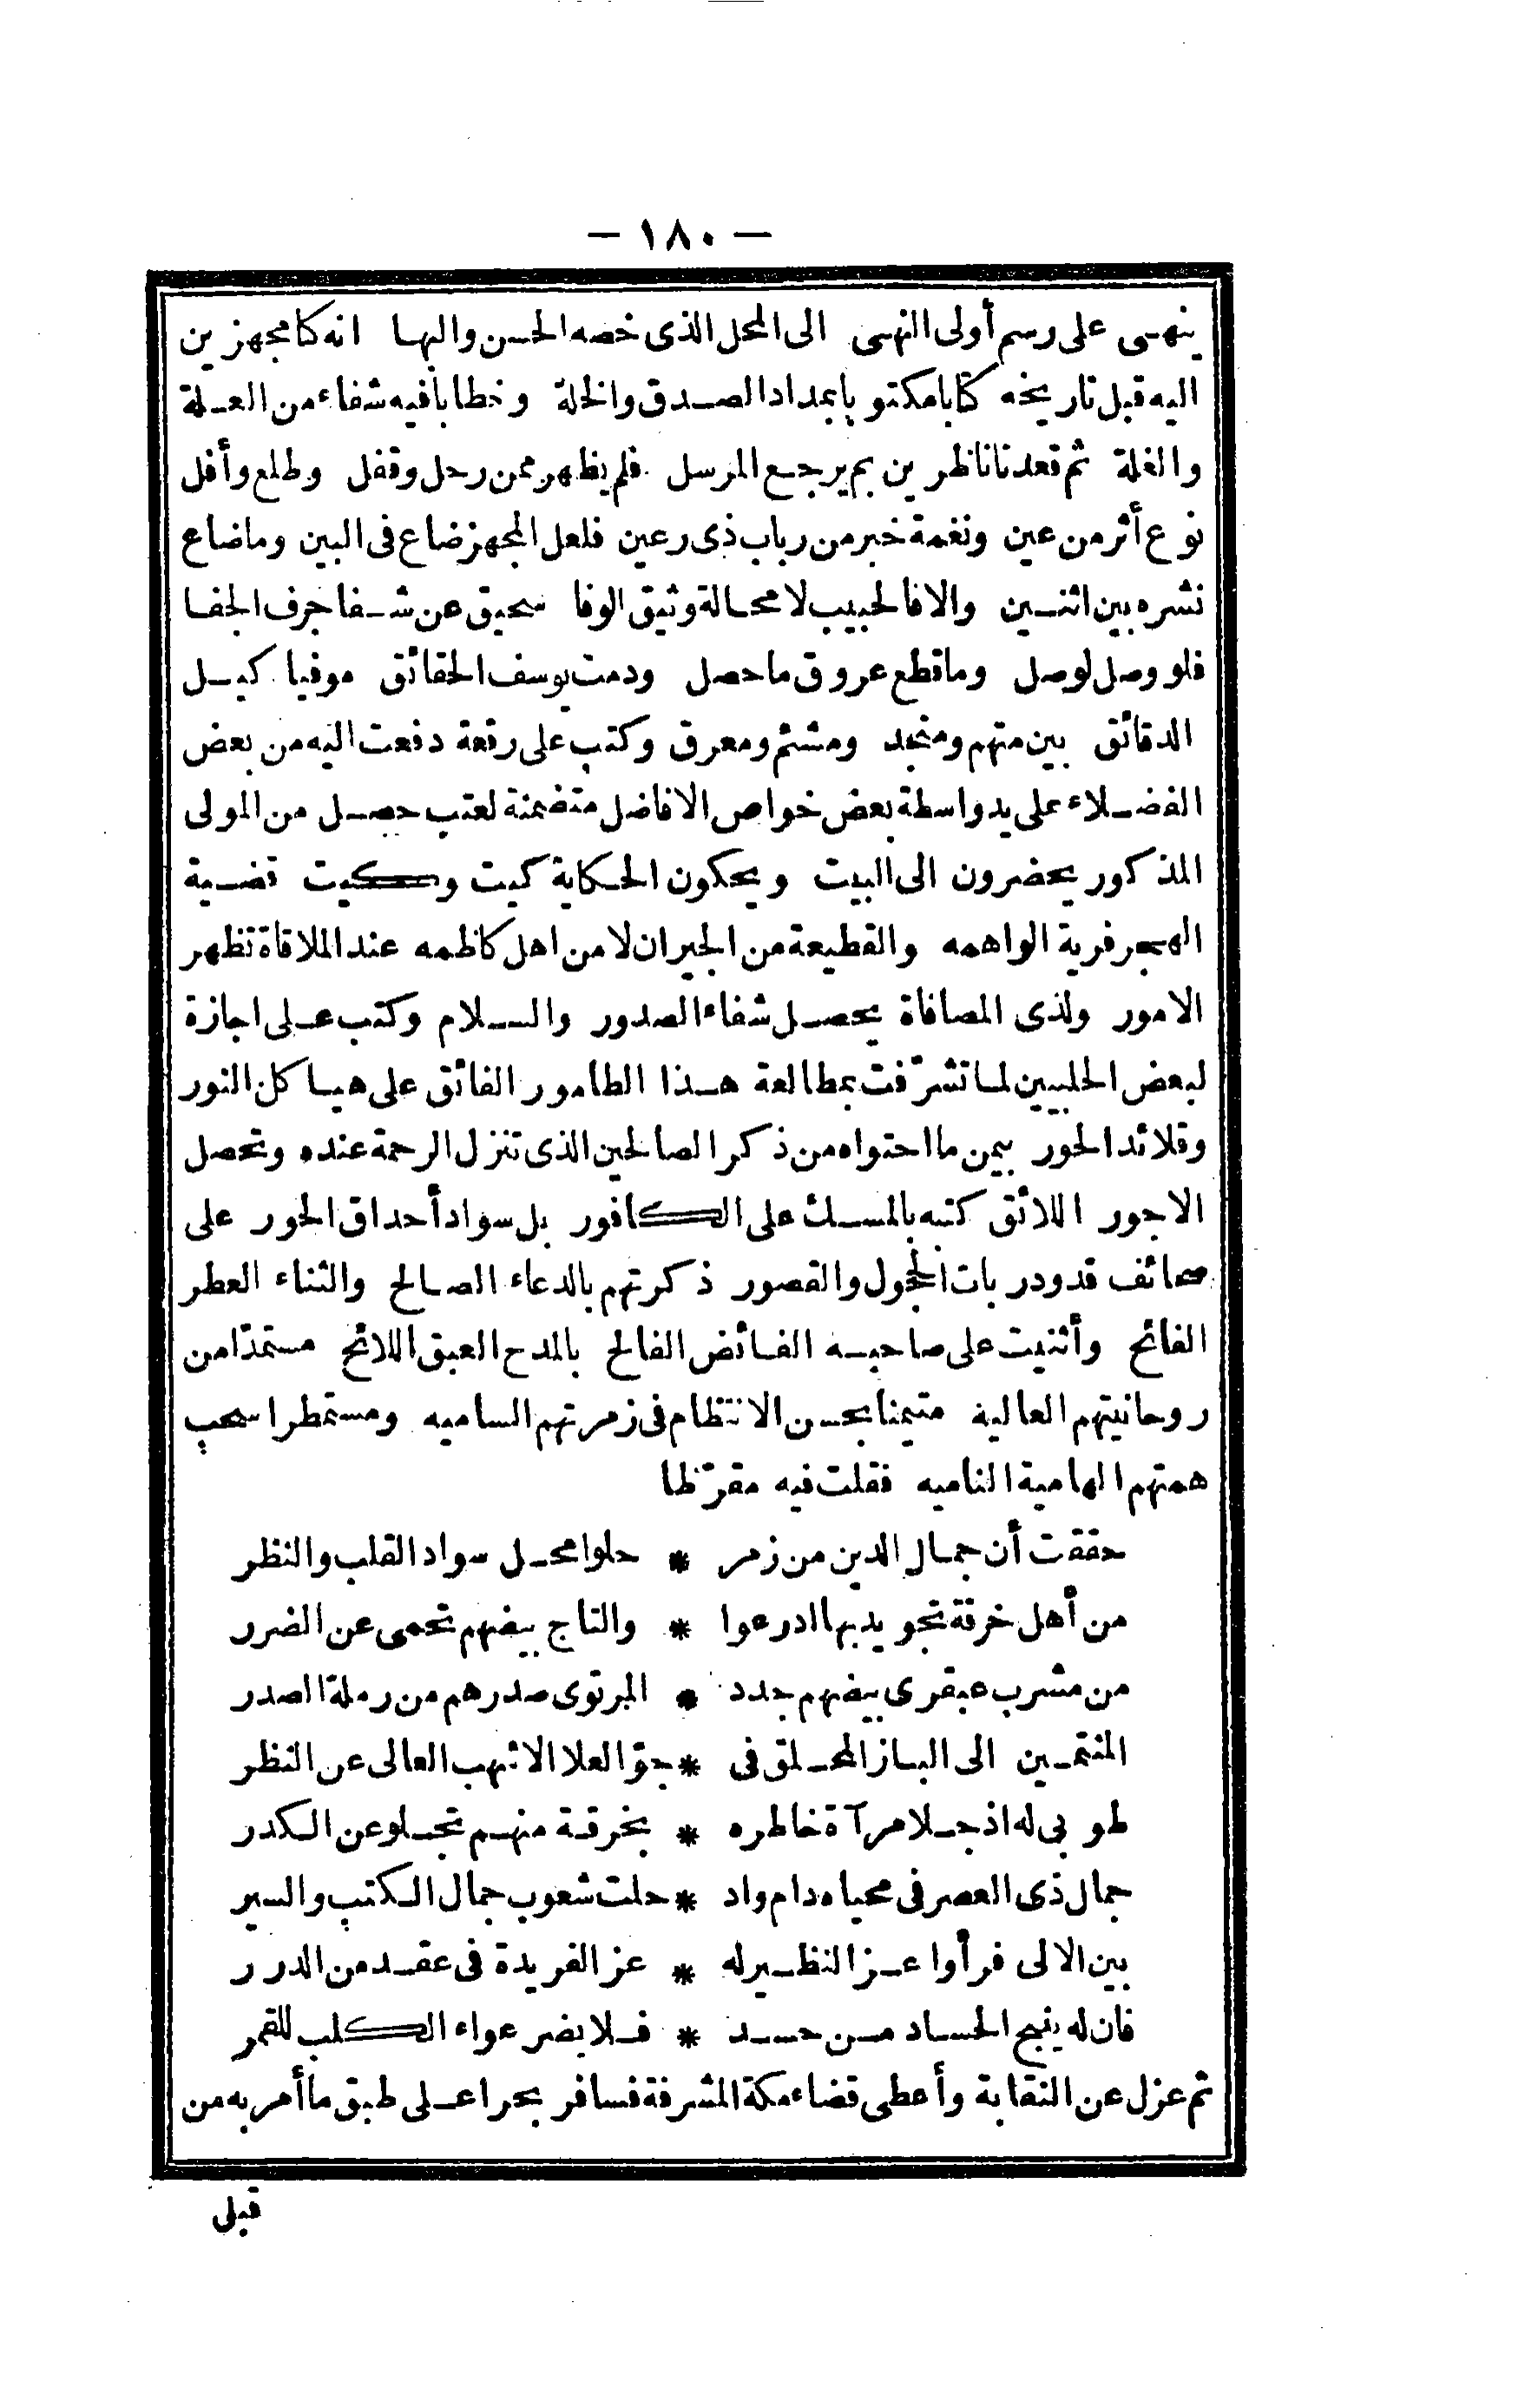 — ١٨٠ —
ينهى على رسم أولى النهى الى المحل الذى خصه الحسن والبها انه كا مجهزين
اليه قبل تاريخه كتابا مكتوبا بمداد الصدق والخلة وخطابا فيه شفاء من العلة
والغلة ثم قعدنا ناظرين بم يرجع المرسل فلم يظهر ممن رحل وقفل وطلع وأفل
نوع أثر من عين ونغمة خبر من رباب ذى رعين فلعل المجهز ضاع فى البين وما ضاع
نشره بين اثنين والا فالحبيب لا محالة وثيق الوفا سحيق عن شفا جرف الجفا
فلو وصل لوصل وما قطع عروق ما حصل ودمت يوسف الحقائق موفيا كيل
الدقائق بين متهم ومنجد ومشئم ومعرق وكتب على رقعة دفعت اليه من بعض
الفضلاء على يد واسطة بعض خواص الافاضل متضمنة لعتب حصل من المولى
المذكور يحضرون الى البيت ويحكون الحكاية كيت وكيت قضية
الهجر فرية الواهمه والقطيعة من الجيران لا من اهل كاظمه عند الملاقاة تظهر
الامور ولذى المصافاة يحصل شفاء الصدور والسلام وكتب على اجازة
لبعض الحلبيين لما تشرّفت بمطالعة هذا الطامور الفائق على هياكل النور
وقلائد الحور بيمن ما احتواه من ذكر الصالحين الذى تنزل الرحمة عنده وتحصل
الاجور اللائق كتبه بالمسك على الكافور بل سواد أحداق الحور على
صحائف قدود ربات الحجول والقصور ذكرتهم بالدعاء الصالح والثناء العطر
الفائح وأثنيت على صاحبه الفائض الفالح بالمدح العبق اللائح مستمدّا من
روحانيتهم العالية متيمنا بحسن الانتظام فى زمرتهم الساميه ومستمطرا سحب
همتهم الهامية الناميه فقلت فيه مقرّظا
حققت أن جمال الدين من زمر * حلوا محل سواد القلب والنظر
من أهل خرقة تجويد بها ادرعوا * والتاج بيضهم تحمى عن الضرر
من مشرب عبقرى بيضهم جدد * المرتوى صدرهم من رملة الصدر
المنتمين الى الباز المحلق فى * جوّ العلا الاشهب العالى عن النظر
طوبى له اذ جلا مرآة خاطره * بخرقة منهم تجلو عن الكدر
جمال ذى العصر فى محياه دام واد * حلت شعوب جمال الكتب والسير
بين الالى فرأوا عز النظير له * عز الفريدة فى عقد من الدرر
فان له ينبح الحساد من حسد * فلا يضر عواء الكلب للقمر
ثم عزل عن النقابة وأعطى قضاء مكة المشرفة فسافر بحرا على طبق ما أمر به من
قبل